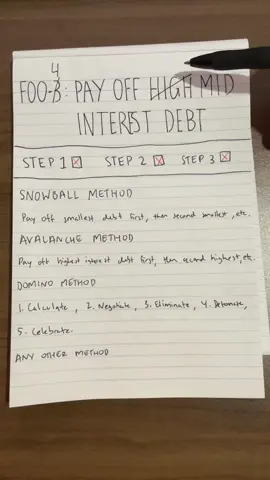 4
FOO-3: PAY OFF HIGH MID
INTEREST DEBT
STEP 1 ☒ STEP 2 ☒ STEP 3 ☒
SNOWBALL METHOD
Pay off smallest debt first, then second smallest, etc.
AVALANCHE METHOD
Pay off highest interest debt first, then second highest, etc.
DOMINO METHOD
1. Calculate, 2. Negotiate, 3. Eliminate, 4. Detonate,
5. Celebrate.
ANY OTHER METHOD